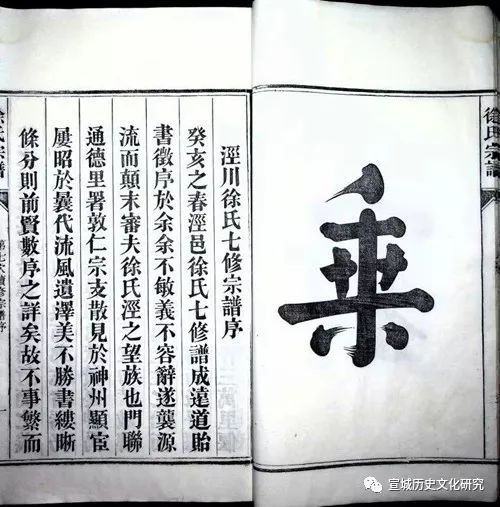 徐氏宗譜
乘
涇川徐氏七修宗譜序
癸亥之春涇邑徐氏七修譜成遠道貽
書徵序於余余不敏義不容辭遂襲源
流而顛末審夫徐氏涇之望族也門聯
通德里署敦仁宗支散見於神州顯宦
屢昭於曩代流風遺澤美不勝書縷晰
條分則前賢數序之詳矣故不事繁而
徐氏宗譜
第七次續修宗譜序
宣城历史文化研究